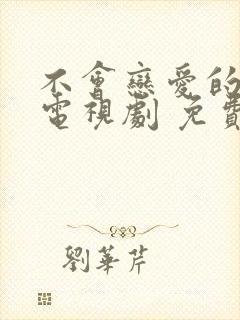 不會戀愛的
電視劇 免費
劉華芹